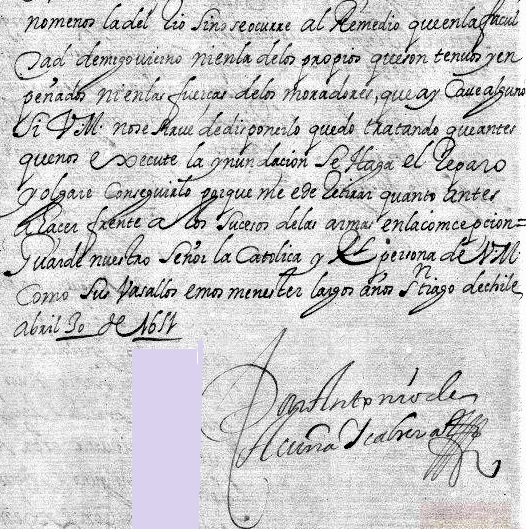 nomenos la del Rio sino se ocurre al Remedio que en la facul
tad de mi govierno ni en la de los propios que son tenuos y en
peñados ni en las fuercas de los moradores, que ay Cave alguno
si V.M. no se sirve de disponerlo quedo tratando que antes
que nos e execute la ynundacion se Haga el Reparo
y olgare Conseguirlo porque me e de Retirar quanto antes
a Hacer frente a los Sucesos de las armas en la comcepcion=
Guarde nuestro Señor la Catolica y Rl persona de V.M.
Como sus Vasallos emos menester largos años Stiago de chile
Abril 30 de 1651
Don Antonio de
Acuña Y cabrera